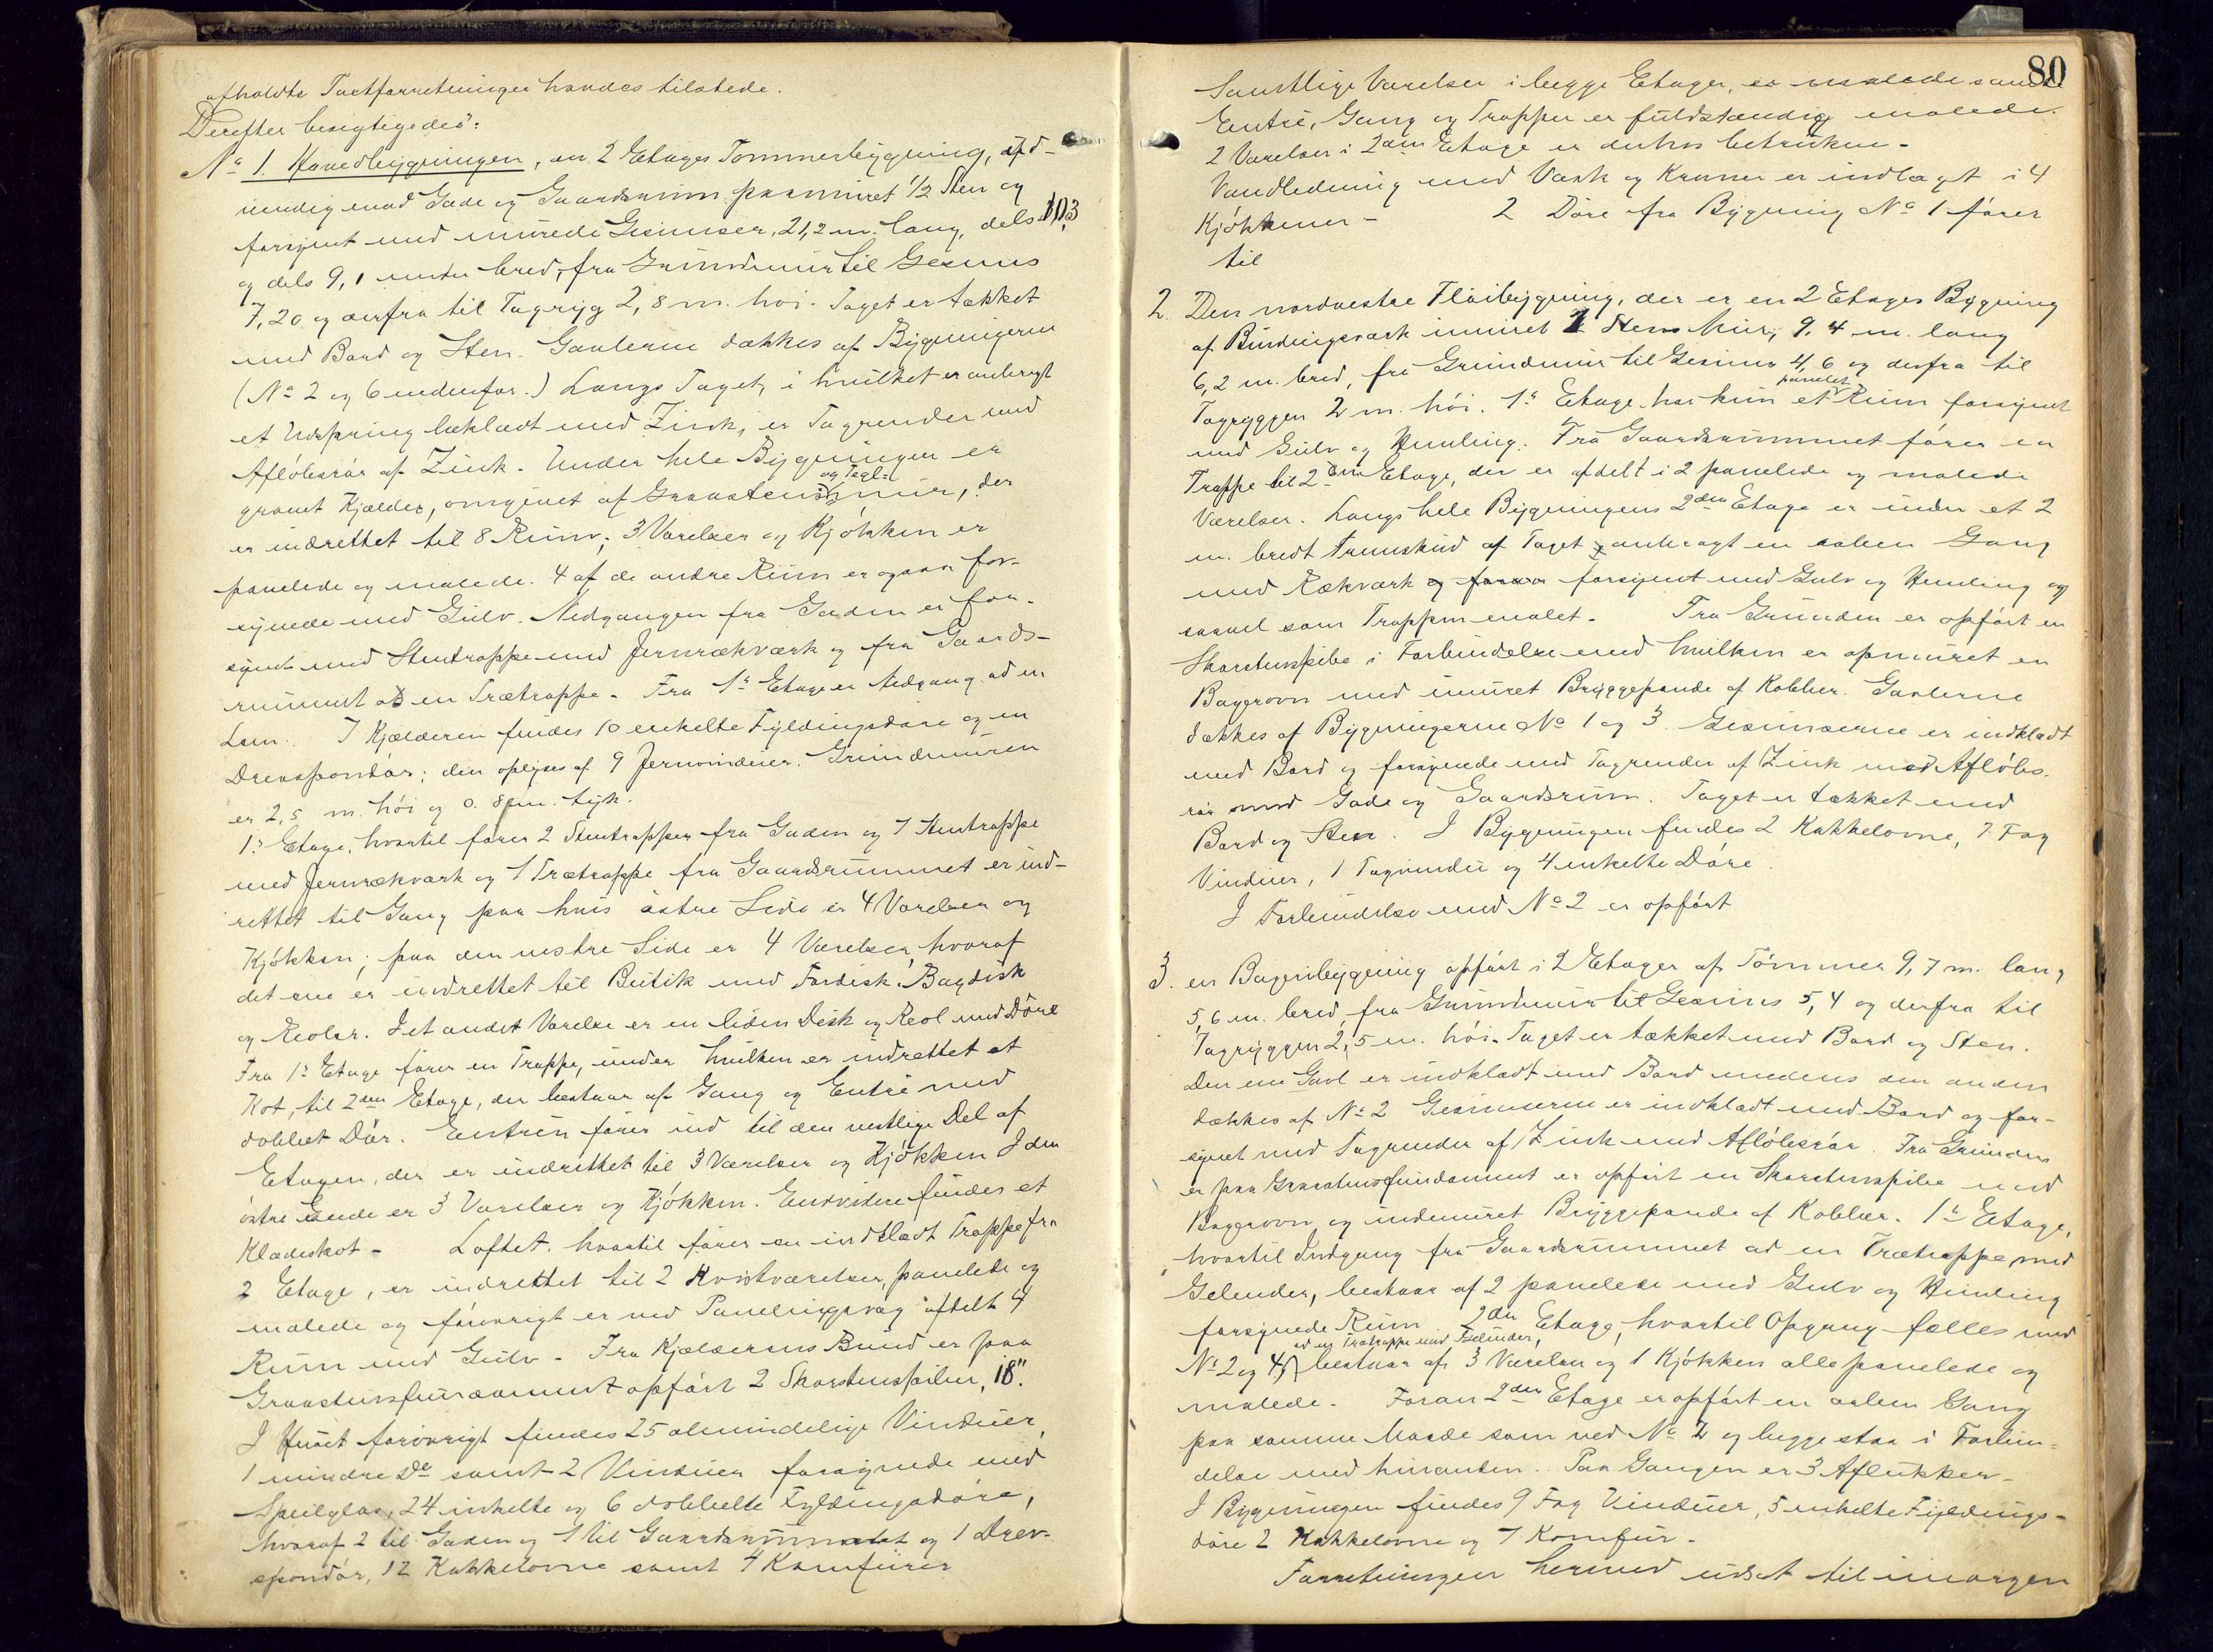 afholdte Taxtforretninger havdes tilstede.
Derefter besigtigedes:
No 1. Hovedbygningen, en 2 Etages Tømmerbygning, udv-
vendig mod Gade og Gaardsrum paamuret 1/2 Sten og
forsynet med murede Gesimser, 21,2 m. lang, dels 10,3
og dels 9,1 meter bred, fra Grundmur til Gesims
7,20 og derfra til Tagryg 2,8 m. høi. Taget er tækket
med Bord og Sten. Gavlerne dækkes af Bygningerne
(No 2 og 6 nedenfor.) Langs Taget, i hvilket er anbragt
et Udspring beklædt med Zink, er Tagrender med
Afløbsrør af Zink. Under hele Bygningen er
gravet Kjælder, omgivet af Graastens og Tegl- mur, der
er indrettet til 8 Rum; 3 Værelser og Kjøkken er
panelede og malede. 4 af de andre Rum er ogsaa for-
synede med Gulv. Nedgangen fra Gaden er for-
synet med Stentrappe med Jernrækværk og fra Gaards-
rummet ad en Trætrappe. Fra 1ste Etage er Nedgang ad en
Lem. I Kjælderen findes 10 enkelte Fyldingsdøre og en
Drevspondør; den oplyses af 9 Jernvinduer. Grundmuren
er 2,5 m. høi og 0.8 m. tyk.
1ste Etage, hvortil fører 2 Stentrapper fra Gaden og 1 Stentrappe
med Jernrækværk og 1 Trætrappe fra Gaardsrummet er ind-
rettet til Gang paa hvis østre Side er 4 Værelser og
Kjøkken; paa den vestre Side er 4 Værelser, hvoraf
det ene er indrettet til Butik med Fordisk, Bagdisk
og Reoler. I et andet Værelse er en liden Disk og Reol med Døre
Fra 1ste Etage fører en Trappe, under hvilken er indrettet et
Kot, til 2den Etage, der bestaar af Gang og Entré med
dobbelt Dør. Entréen fører ind til den vestlige Del af
Etagen, der er indrettet til 3 Værelser og Kjøkken I den
østre Ende er 3 Værelser og Kjøkken. Endvidere findes et
Klædeskot - Loftet, hvortil fører en indklædt Trappe fra
2 Etage, er indrettet til 2 Kvistværelser, panelede og
malede og forøvrigt er ved Panelingsvæg afdelt 4
Rum med Gulv - Fra Kjælderens Bund er paa
Graastensfundament opført 2 Skorstenspiber, 18".
I Huset forøvrigt findes 25 almindelige Vinduer,
1 mindre Do samt 2 Vinduer forsynede med
Speilglas, 24 enkelte og 6 dobbelte Fyldingsdøre,
hvoraf 2 til Gaden og 1 til Gaardsrummet og 1 Drev-
spondør, 12 Kakkelovne samt 4 Komfurer
80
Samtlige Værelser i begge Etager, er malede samt
Entré, Gang og Trapper er fuldstændig malede.
2 Værelser i 2den Etage er derhos betrukne -
Vandledning med Vask og Kraner er indlagt i 4
Kjøkkener - 2 Døre fra Bygning No 1 fører
til
2. Den nordvestre Fløibygning, der er en 2 Etages Bygning
af Bindingsværk inmuret 1 Stens Mur, 9,4 m. lang
6,2 m. bred, fra Grundmur til Gesims 4,6 og derfra til
Tagryggen 2 m. høi. 1ste Etage har kun et panelet Rum forsynet
med Gulv og Himling. Fra Gaardsrummet fører en
Trappe til 2den Etage, der er afdelt i 2 panelede og malede
Værelser. Langs hele Bygningens 2den Etage er under et 2
m. bredt Fremskud af Taget anbragt en aaben Gang
med Rækværk og foran forsynet med Gulv og Himling og
saavel som Trappen malet - Fra Grunden er opført en
Skorstenspibe i Forbindelse med hvilken er opmuret en
Bagerovn med imuret Bryggepande af Kobber. Gavlerne
dækkes af Bygningerne No 1 og 3 Gesimserne er indklædt
med Bord og forsynede med Tagrender af Zink med Afløbs-
rør mod Gade og Gaardsrum. Taget er tækket med
Bord og Sten. I Bygningen findes 2 Kakkelovne, 7 Fag
Vinduer, 1 Tagvindu og 4 enkelte Døre.
I Forbindelse med No 2 er opført
3. en Bageribygning opført i 2 Etager af Tømmer 9,7 m. lang
5,6 m. bred, fra Grundmur til Gesims 5,4 og derfra til
Tagryggen 2,5 m. høi. Taget er tækket med Bord og Sten.
Den ene Gavl er indklædt med Bord medens den anden
dækkes af No 2 Gesimserne er indklædt med Bord og for-
synet med Tagrender af Zink med Afløbsrør. Fra Grunden
er paa Graastensfundament er opført en Skorstenspibe med
Bagerovn og indmuret Bryggepande af Kobber. 1ste Etage,
hvortil Indgang fra Gaardsrummet ad en Trætrappe med
Gelender, bestaar af 2 panelede med Gulv og Himling
forsynede Rum 2den Etage, hvortil Opgang fælles med
No 2 og 4, ad en Trætrappe med Gelender, bestaar af 3 Værelser og 1 Kjøkken alle panelede og
malede - Foran 2den Etage er opført en aaben Gang
paa samme Maade som ved No 2 og begge staa i Forbin-
delse med hinanden. Paa Gangen er 3 Aflukker -
I Bygningen findes 9 Fag Vinduer, 5 enkelte Fyldings-
døre 2 Kakkelovne og 1 Komfur -
Forretningen hermed udsat til imorgen